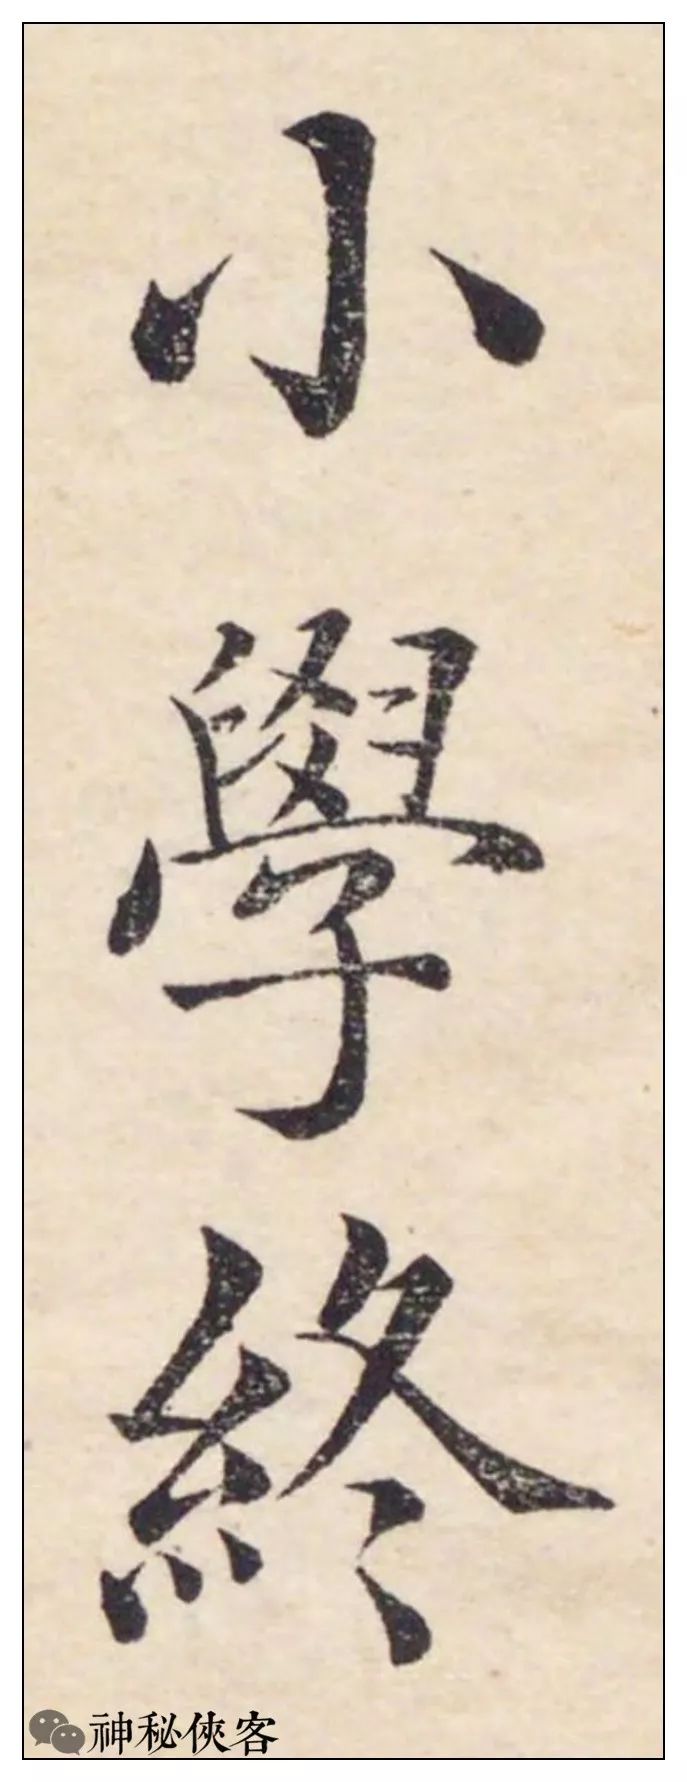 小學終
神秘俠客